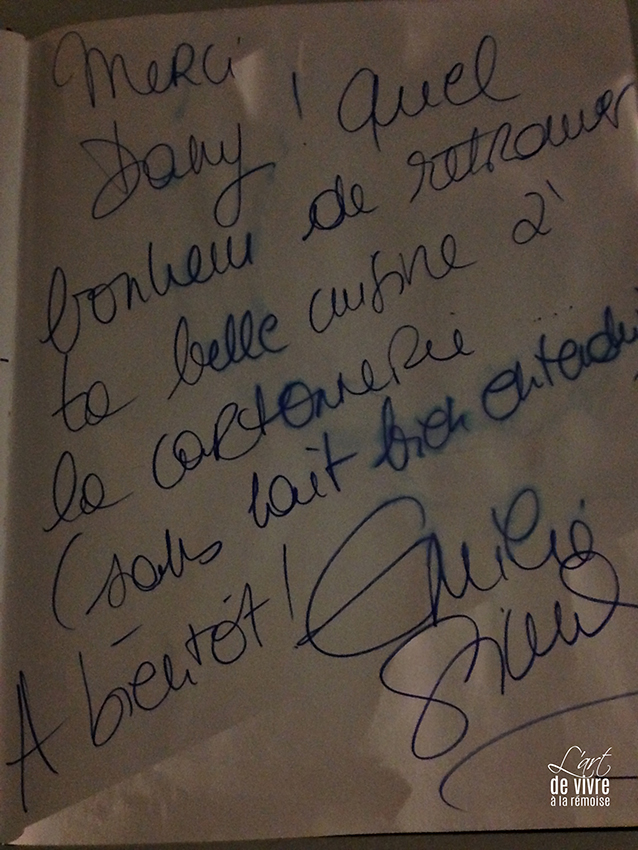 Merci
Dany ! Quel
bonheur de retrouver
ta belle cuisine à
la cartonnerie ...
(sans lait bien entendu
A bientôt !
Emilie
L'art
de vivre
à la rémoise